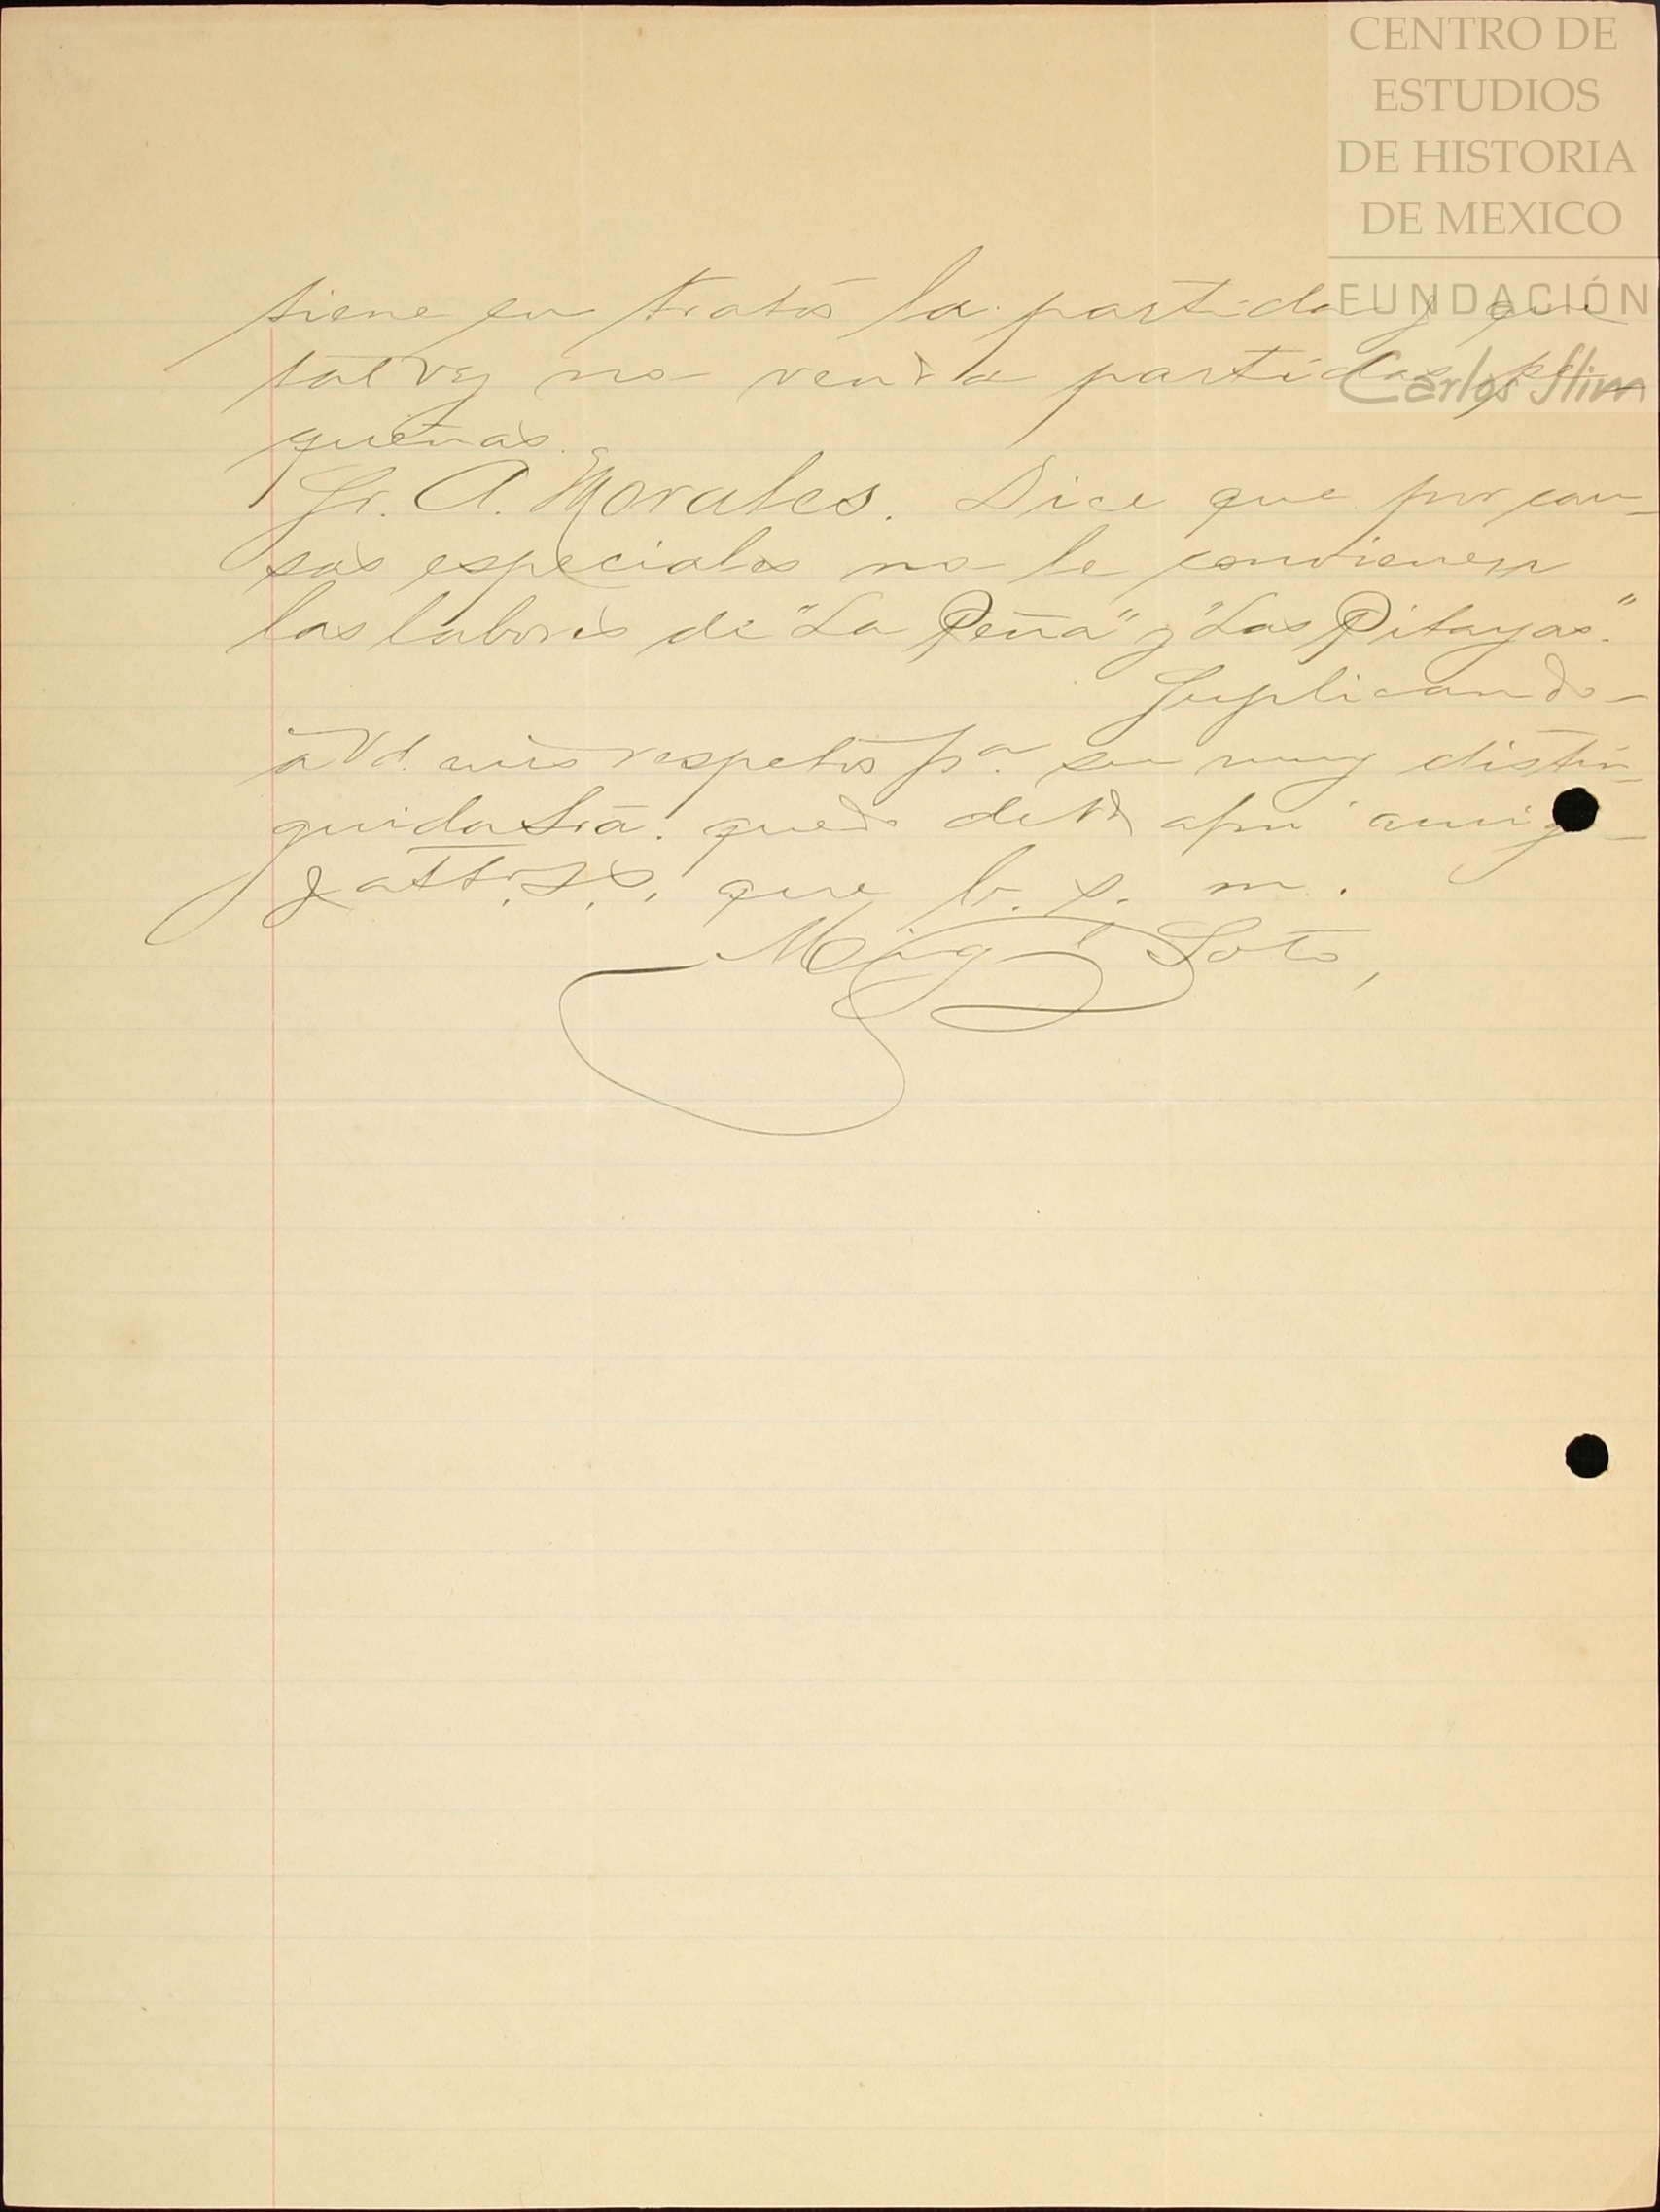 CENTRO DE
ESTUDIOS
DE HISTORIA
DE MEXICO
FUNDACIÓN
Carlos Slim
tiene en tratos la partida y que
tal vez no venda partidas pe-
queñas.
Sr. A. Morales. Dice que por cau-
sas especiales no le convienen
las labores de "La Peña" y "Las Pitayas."
Suplicando-
à Vd. mis respetos pª. su muy distin-
guida Sra. quedo de Vd afmo amigo-
y atto. S. S. que b. s. m.
Mig Soto,